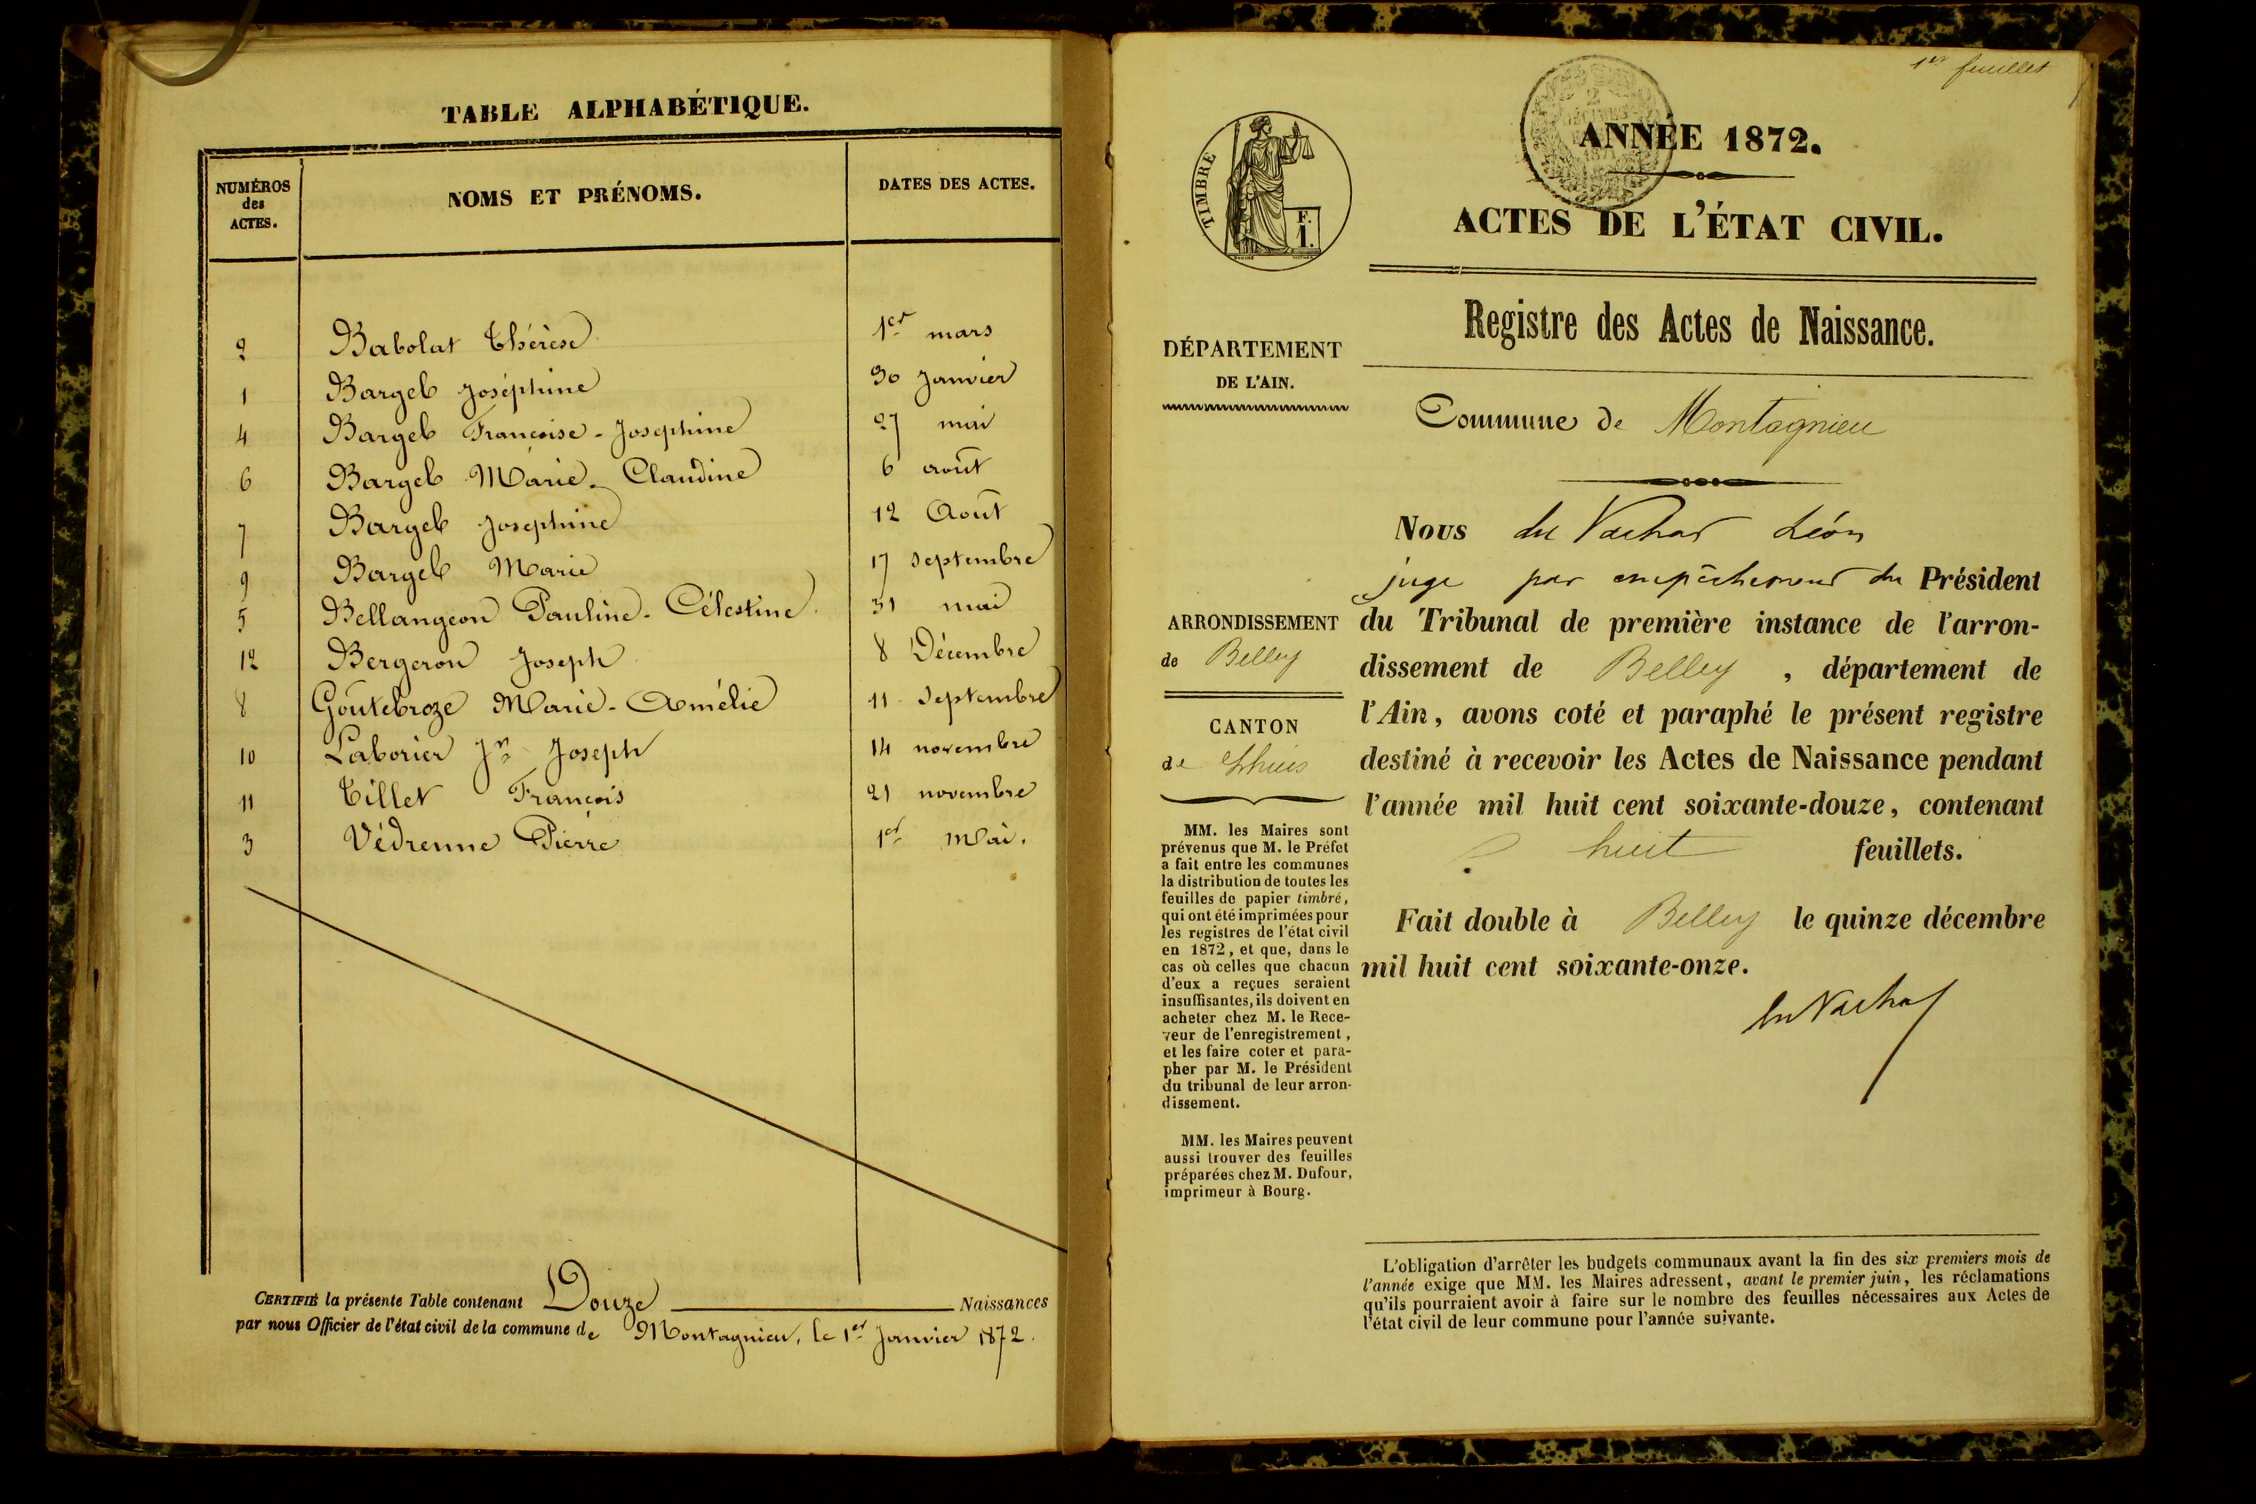 TABLE ALPHABÉTIQUE.
NUMÉROS
des
ACTES.
NOMS ET PRÉNOMS.
DATES DES ACTES.
2 Babolat Thérèse 1er mars
1 Bargel Joséphine 30 Janvier
4 Bargel Françoise-Josephine 27 mai
6 Bargel Marie-Claudine 6 août
7 Bargel Josephine 12 Août
9 Bargel Marie 17 Septembre
5 Bellangeon Pauline-Célestine 31 mai
12 Bergeron Joseph 8 Décembre
8 Goutebroze Marie-Amélie 11 Septembre
10 Laborier Jn Joseph 14 novembre
11 Tillet François 21 novembre
3 Védrenne Pierre 1er Mai.
CERTIFIÉ la présente Table contenant Douze Naissances
par nous Officier de l'état civil de la commune de Montagnieu, le 1er Janvier 1872.
1er feuillet
TIMBRE
F. I.
2
ANNÉE 1872.
ACTES DE L'ÉTAT CIVIL.
Registre des Actes de Naissance.
DÉPARTEMENT
DE L'AIN.
Commune de Montagnieu
ARRONDISSEMENT
de Belley
CANTON
de Lhuis
MM. les Maires sont
prévenus que M. le Préfet
a fait entre les communes
la distribution de toutes les
feuilles de papier timbré,
qui ont été imprimées pour
les registres de l'état civil
en 1872, et que, dans le
cas où celles que chacun
d'eux a reçues seraient
insuffisantes, ils doivent en
acheter chez M. le Rece-
veur de l'enregistrement,
et les faire coter et para-
pher par M. le Président
du tribunal de leur arron-
dissement.
MM. les Maires peuvent
aussi trouver des feuilles
préparées chez M. Dufour,
imprimeur à Bourg.
Nous du Vachat Léon
juge par empêchement du Président
du Tribunal de première instance de l'arron-
dissement de Belley, département de
l'Ain, avons coté et paraphé le présent registre
destiné à recevoir les Actes de Naissance pendant
l'année mil huit cent soixante-douze, contenant
huit feuillets.
Fait double à Belley le quinze décembre
mil huit cent soixante-onze.
du Vachat
L'obligation d'arrêter les budgets communaux avant la fin des six premiers mois de
l'année exige que MM. les Maires adressent, avant le premier juin, les réclamations
qu'ils pourraient avoir à faire sur le nombre des feuilles nécessaires aux Actes de
l'état civil de leur commune pour l'année suivante.